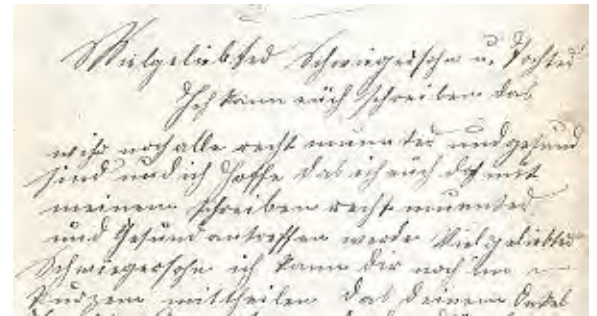 Vielgeliebter Schwiegersohn u. Tochter
Ich kann euch schreiben das
wihr noch alle recht munnter und gesund
sind und ich hoffe das ich euch dh mit
meinem schreiben recht muenter
und Gesund antreffen werde Viel geliebter
Schwiegersohn ich kann dir noch im
Kurzem mittheilen das deinem Onkel